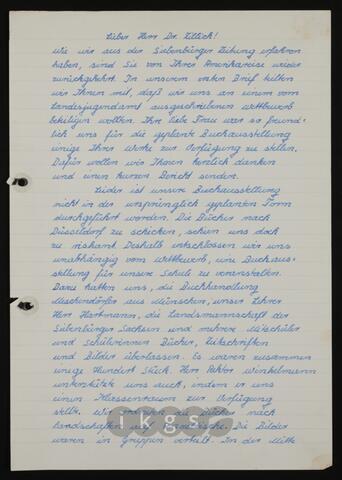 Lieber Herr Dr. Zillich!
Wie wir aus der Siebenbürger Zeitung erfahren
haben, sind Sie von Ihrer Amerikareise wieder
zurückgekehrt. In unserem ersten Brief teilten
wir Ihnen mit, daß wir uns an einem vom
Landesjugendamt ausgeschriebenen Wettbewerb
beteiligen wollten. Ihre liebe Frau war so freund-
lich uns für die geplante Buchausstellung
einige Ihrer Werke zur Verfügung zu stellen.
Dafür wollen wir Ihnen herzlich danken
und einen kurzen Bericht senden.
Leider ist unsere Buchausstellung
nicht in der ursprünglich geplanten Form
durchgeführt worden. Die Bücher nach
Düsseldorf zu schicken, schien uns doch
zu riskant. Deshalb entschlossen wir uns
unabhängig vom Wettbewerb, eine Buchaus-
stellung für unsere Schule zu veranstalten.
Dazu hatten uns, die Buchhandlung
Meschendörfer aus München, unser Lehrer
Herr Hartmann, die Landsmannschaft der
Siebenbürger Sachsen und mehrere Mitschüler
und Schülerinnen Bücher, Zeitschriften
und Bilder überlassen. Es waren zusammen
einige Hundert Stück. Herr Rektor Winkelmann
unterstützte uns auch, indem er uns
einen Klassenraum zur Verfügung
stellte. Wir Bücher nach
Landschaften auf Tische. Die Bilder
waren in Gruppen verteilt. In der Mitte
ikgs